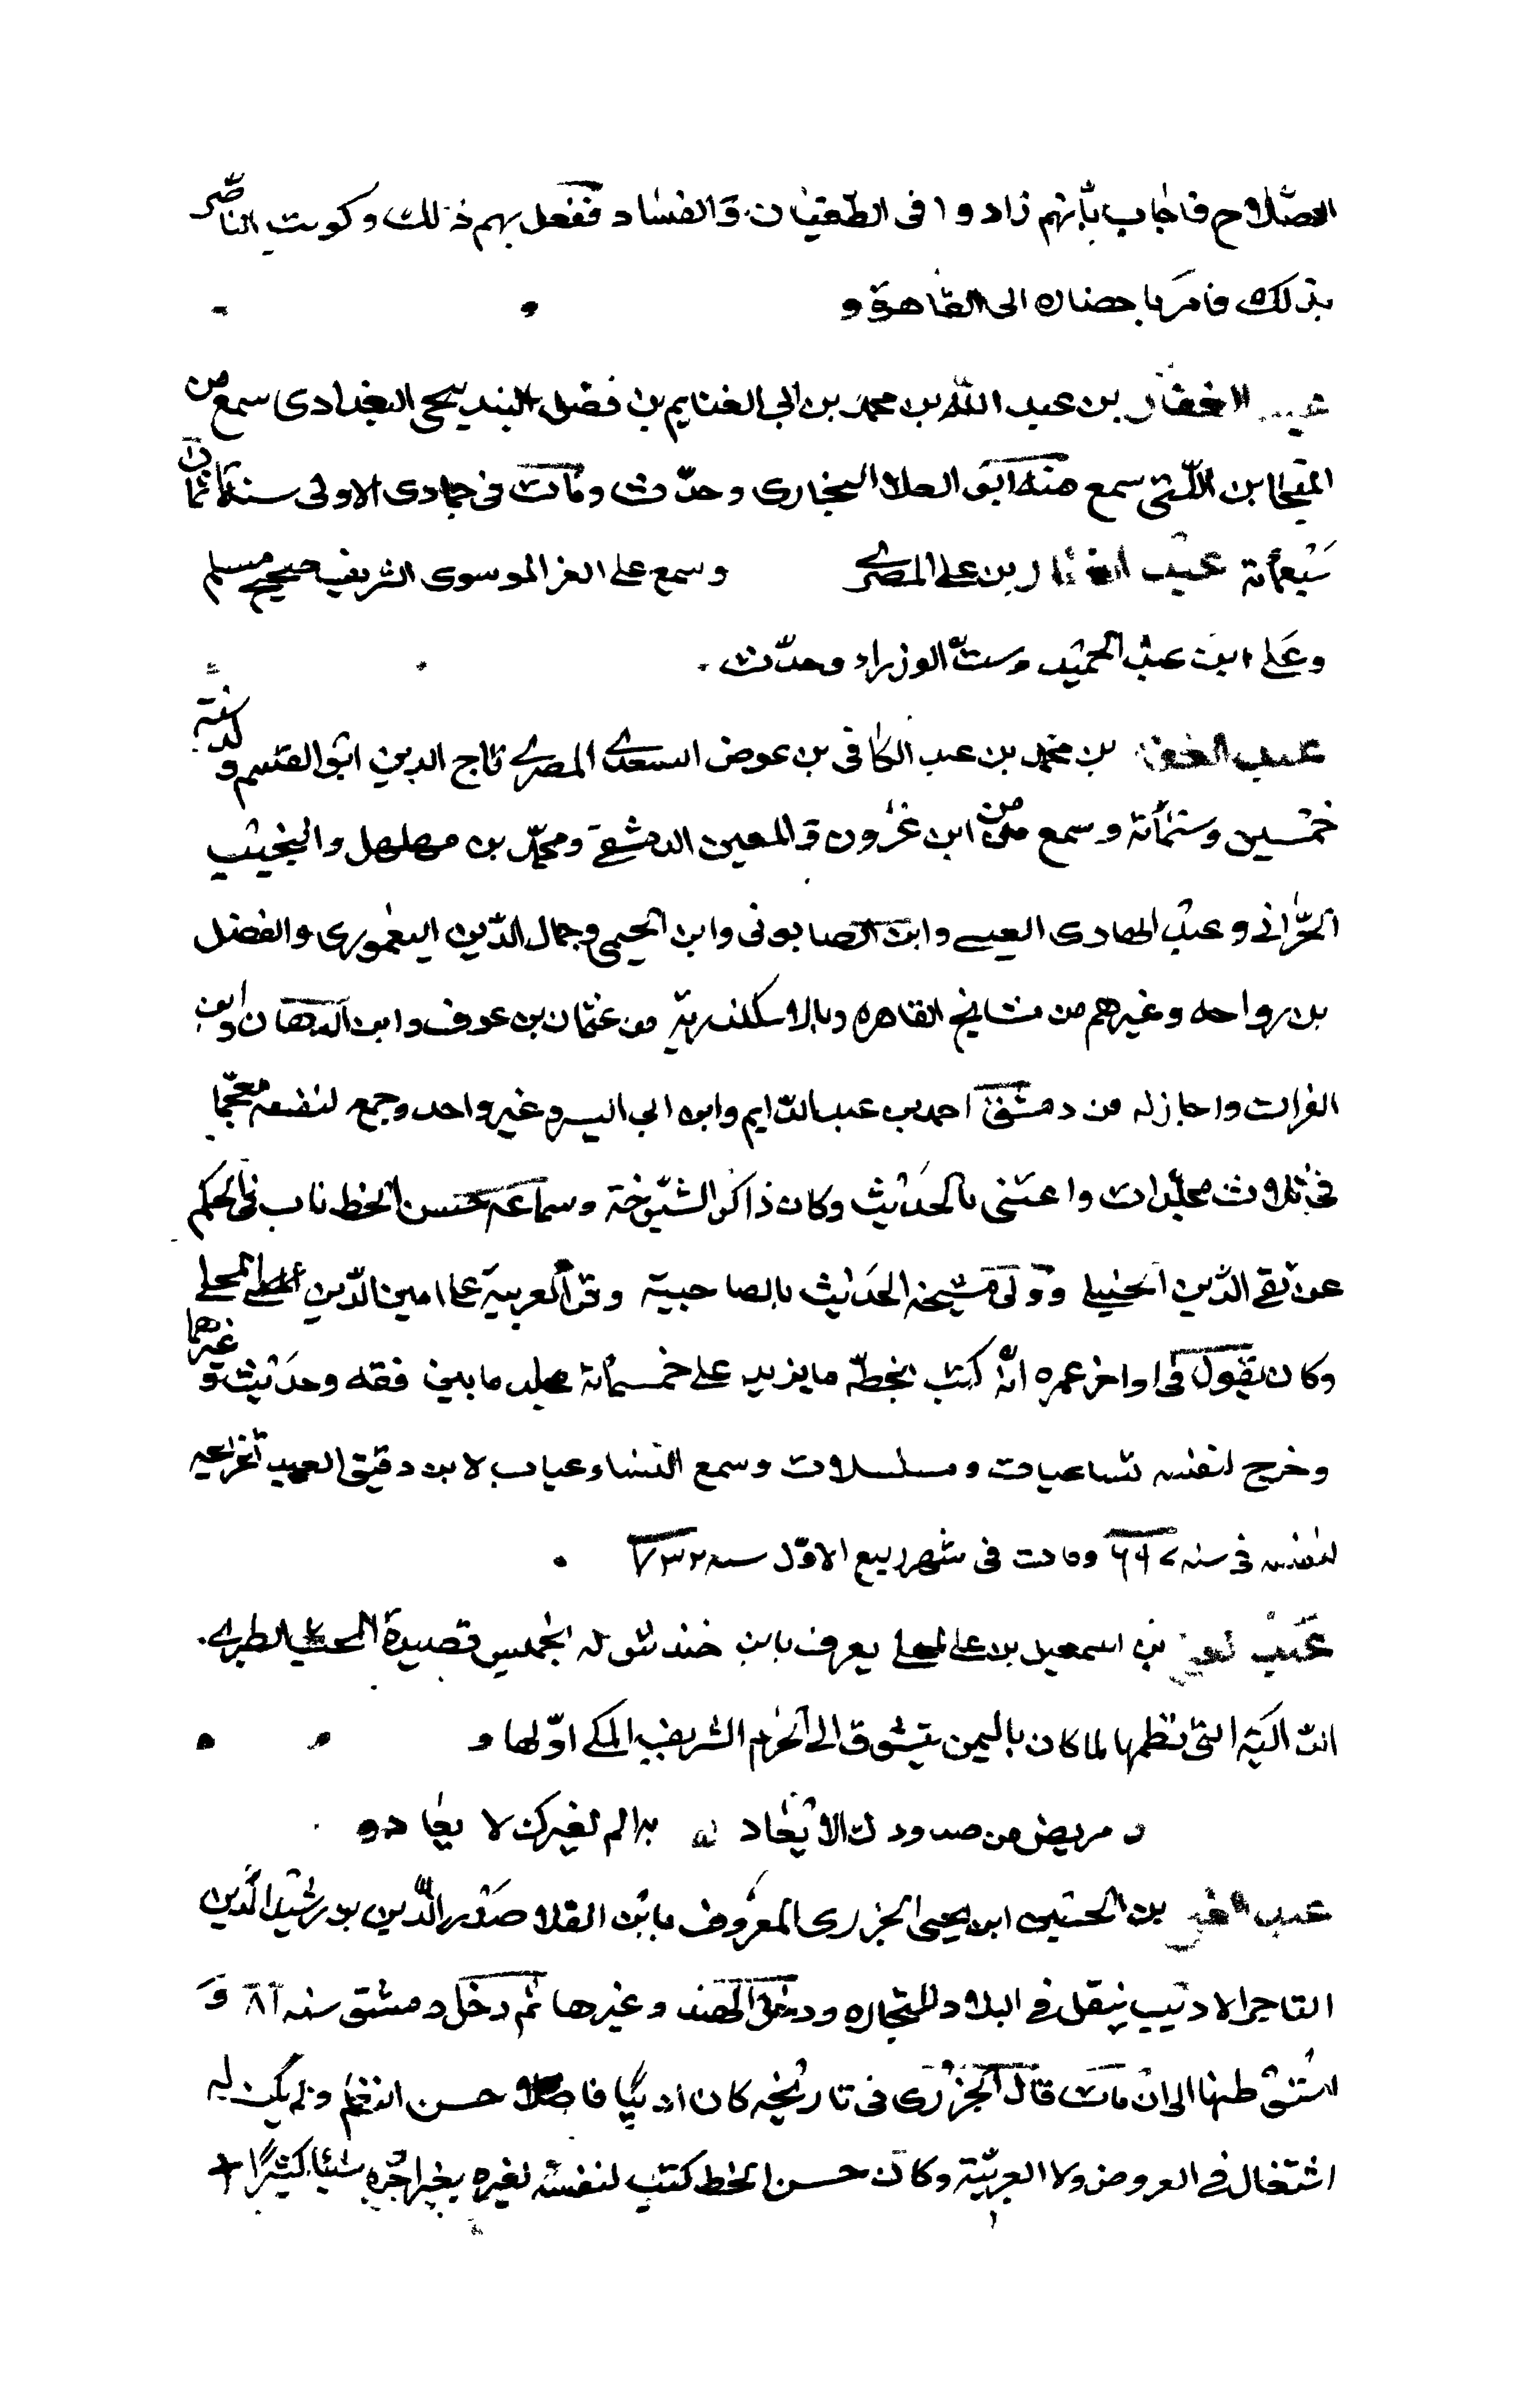 الصّلاح فاجاب بأنهم زادوا فى الطّغيان والفساد ففعل بهم ذلك وكوتب الناصر
بذلك فامر باحضاره الى القاهرة و
عبد الغفار بن عبد الله بن محمد بن ابى الغنايم بن فضل البنديجى البغدادى سمع من
ابن اللّتى سمع منه ابو العلا البخارى وحدّث ومات فى جمادى الاولى سنة ثمان
سبعمأنة عبد الغفار بن على المصرى وسمع على العز الموسوى الشريف صحيح مسلم
وعلى ابن عبد الحميد وستّ الوزراء وحدّث
عبد الغفار بن محمد بن عبد الكافى بن عوض السعدى المصرى تاج الدين ابو القسم ولد سنة
خمسين وستمأنة وسمع من ابن عزون والمعين الدمشقى ومحمّد بن مهلهل والنجيب
الحرّانى وعبد الهادى القيسى وابن الصابونى وابن الخيمى وجمال الدّين اليغمورى والفضل
بن رواحه وغيرهم من مشايخ القاهره وبالاسكندرية من عثمان بن عوف وابن الدهان وابن
الفرات واجاز له من دمشق احمد بن عبد الدّايم وابن ابى اليسر وغير واحد وجمع لنفسه معجما
فى ثلاث مجلّدات واعتنى بالحديث وكان ذاكرا لشيوخة وسماعه حسن الخط ناب فى الحكم
عن تقى الدّين الحنبلى وولى مشيخة الحديث بالصاحبية وقرأ العربية على امين الدّين المحلى
وكان يقول فى اواخر عمره انّه كتب بخطّه ما يزيد على خمسمأنة مجلد ما بين فقه وحديث وغيرهما
وخرج لنفسه تساعيات ومسلسلات وسمع لابن دقيق العيد تخراجه
لنفسه فى سنه ومات فى شهر ربيع الاوّل سنه ٧٣٢
عبد بن اسمعيل بن على يعرف بابن له قصيدة المحب الطبرى
التى نظمها لما كان باليمن يتشوق الى الحرم الشريف المكى اوّلها
مريض من صدودك لا يعاد به الم لغيرك لا يعاد
عبد بن الحسين ابن يحيى الجزرى المعروف بابن صدر الدّين بن رشيد الدّين
التاجر الاديب ينقل فى البلاد للتجاره ودخل الهند وغيرها ثم دخل دمشق سنه و
استوطنها الى ان مات قال الجزرى فى تاريخه كان اديبا فاضلا حسن النغم ولم يكن له
اشتغال فى العروض ولا العربيّة وكان حسن الخط كتب لنفسه لغيره بغير اجره شيئا كثيرا